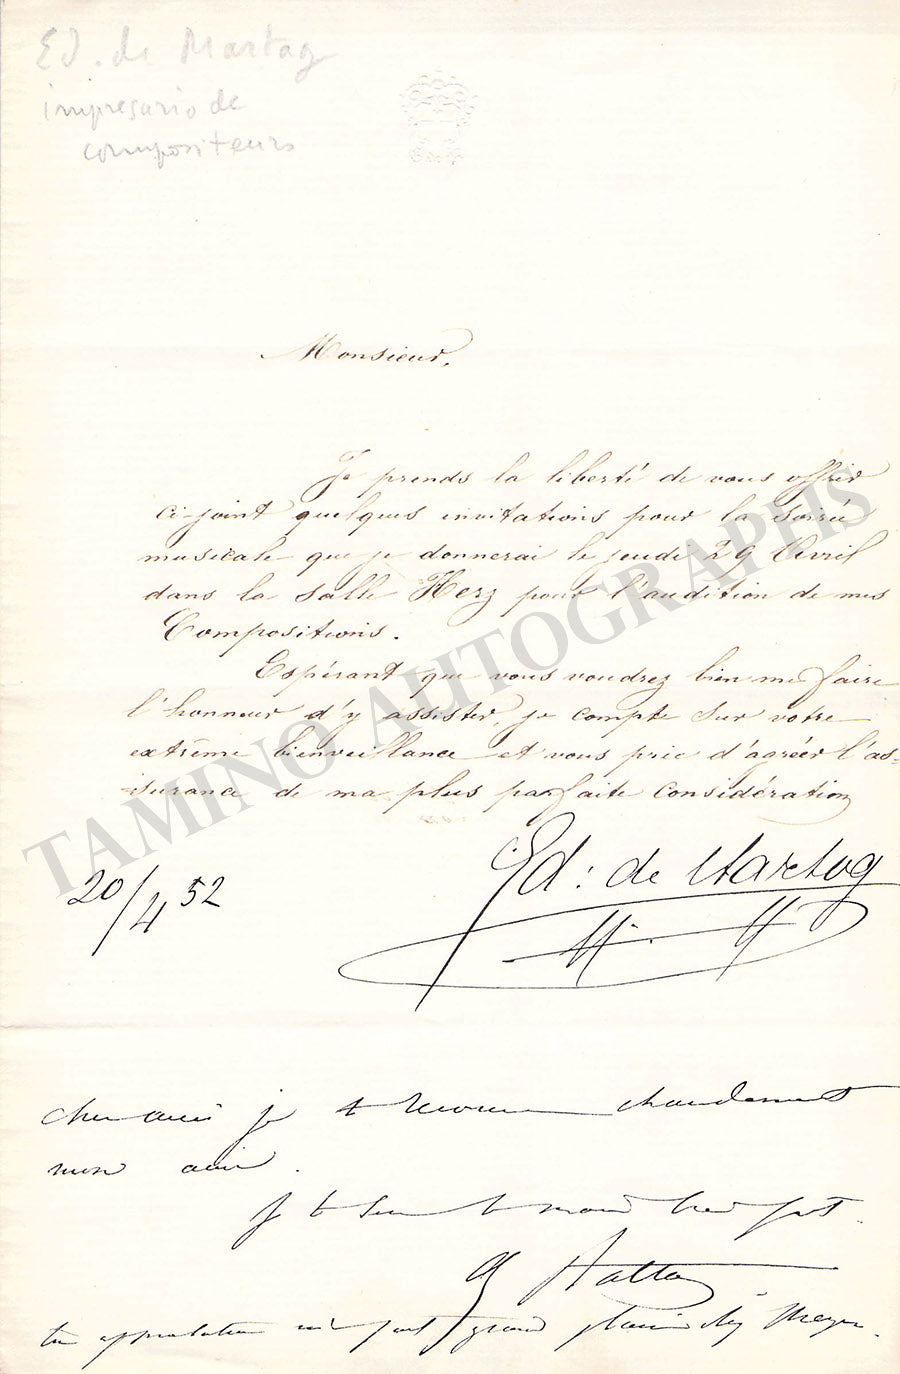 Ed. de Martag
impresario de
compositeurs
Monsieur,
Je prends la liberté de vous offrir
ci-joint quelques invitations pour la soirée
musicale que je donnerai le jeudi 29 Avril
dans la salle Herz pour l'audition de mes
Compositions.
Espérant que vous voudrez bien me faire
l'honneur d'y assister, je compte sur votre
extrême bienveillance et vous prie d'agréer l'as-
surance de ma plus parfaite considération
Ed: de Hartog
20/4 52
cher ami je te chaudement
mon ami.
Je te la main
ton approbation grand Meyer.
TAMINO AUTOGRAPHS